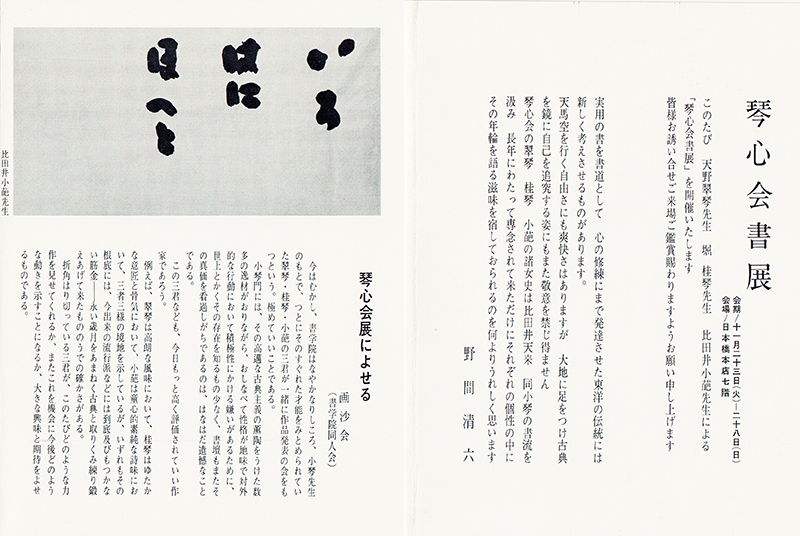 琴心会書展
会期/十一月二十三日(火)―二十八日(日)
会場/日本橋本店七階
このたび 天野翠琴先生 堀 桂琴先生 比田井小葩先生による
「琴心会書展」を開催いたします
皆様お誘い合せご来場ご鑑賞賜わりますようお願い申し上げます
実用の書を書道として 心の修練にまで発達させた東洋の伝統には
新しく考えさせるものがあります。
天馬空を行く自由さにも爽快さはありますが 大地に足をつけ古典
を鏡に自己を追究する姿にもまた敬意を禁じ得ません
琴心会の翠琴 桂琴 小葩の諸女史は比田井天来 同小琴の書流を
汲み 長年にわたって専念されて来ただけにそれぞれの個性の中に
その年輪を語る滋味を宿しておられるのを何よりうれしく思います
野間清六
いろ
はに
ほへと
比田井小葩先生
琴心会展によせる
画沙会
(書学院同人会)
今はむかし、書学院はなやかなりしころ、小琴先生
のもとで、つとにそのすぐれた才能をみとめられてい
た翠琴・桂琴・小葩の三君が一緒に作品発表の会をも
つという。極めていいことである。
小琴門には、その高邁な古典主義の薫陶をうけた数
多の逸材がおりながら、おしなべて性格が地味で対外
的な行動において積極性にかける嫌いがあるために、
世上とかくその存在を知るもの少なく、書壇もまたそ
の真価を看過しがちであるのは、はなはだ遺憾なこと
である。
この三君なども、今日もっと高く評価されていい作
家であろう。
例えば、翠琴は高朗な風味において、桂琴はゆたか
な意匠と骨気において、小葩は童心的素純な詩味にお
いて、三者三様の境地を示しているが、いずれもその
根底には、今出来の流行派などには到底及びもつかな
い筋金――永い歳月をあまねく古典と取りくみ練り鍛
えあげて来たもののうての確かさがある。
折角はり切っている三君が、このたびどのような力
作を見せてくれるか、またこれを機会に今後どのよう
な動きを示すことになるか、大きな興味と期待をよせ
るものである。